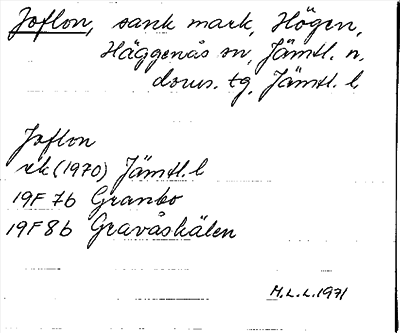 Joflon, sank mark, Högen,
Häggenås sn, Jämtl. n.
doms. tg, Jämtl. l.
Joflon
rk (1970) Jämtl. l
19F 7b Granbo
19F 8b Gravåskälen
M.L.L. 1971